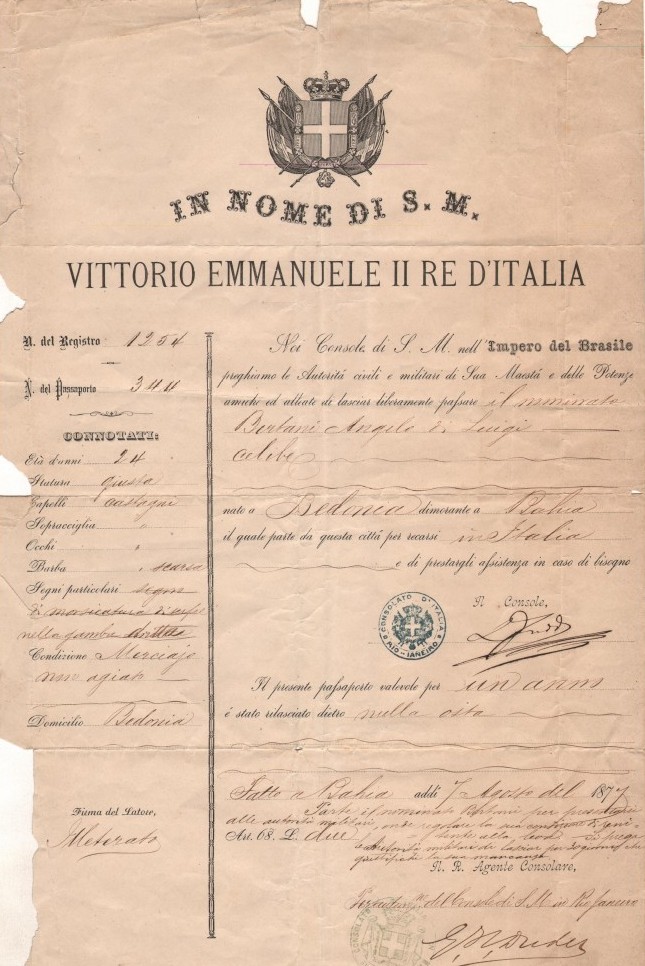 IN NOME DI S. M.
VITTORIO EMMANUELE II RE D'ITALIA
N. del Registro 1254
N. del Passaporto 344
CONNOTATI:
Età d'anni 24
Statura giusta
Capelli castagni
Sopracciglia "
Occhi "
Barba " scarsa
Segni particolari segni
di morsicatura di
nella gamba diritta
Condizione Merciajo
non agiato
Domicilio Bedonia
Firma del Latore,
Illetterato
Noi Console di S. M. nell'Impero del Brasile
preghiamo le Autorità civili e militari di Sua Maestà e delle Potenze
amiche ed alleate di lasciar liberamente passare il nominato
Angelo di Luigi
celibe
nato a Bedonia dimorante a Bahia
il quale parte da questa città per recarsi in Italia
e di prestargli assistenza in caso di bisogno
Il Console,
CONSOLATO D'ITALIA
RIO-JANEIRO
Il presente passaporto valevole per un anno
è stato rilasciato dietro nulla osta
Fatto a Bahia addì 7 Agosto del 1877
Parte il nominato per presentarsi
alle autorità militari, onde regolare la sua
Art. 68. L. due
autorità militari di lasciar per 30 giorni che
giustifichi la sua mancanza
Il R. Agente Consolare,
del Console di S M in Rio Janeiro